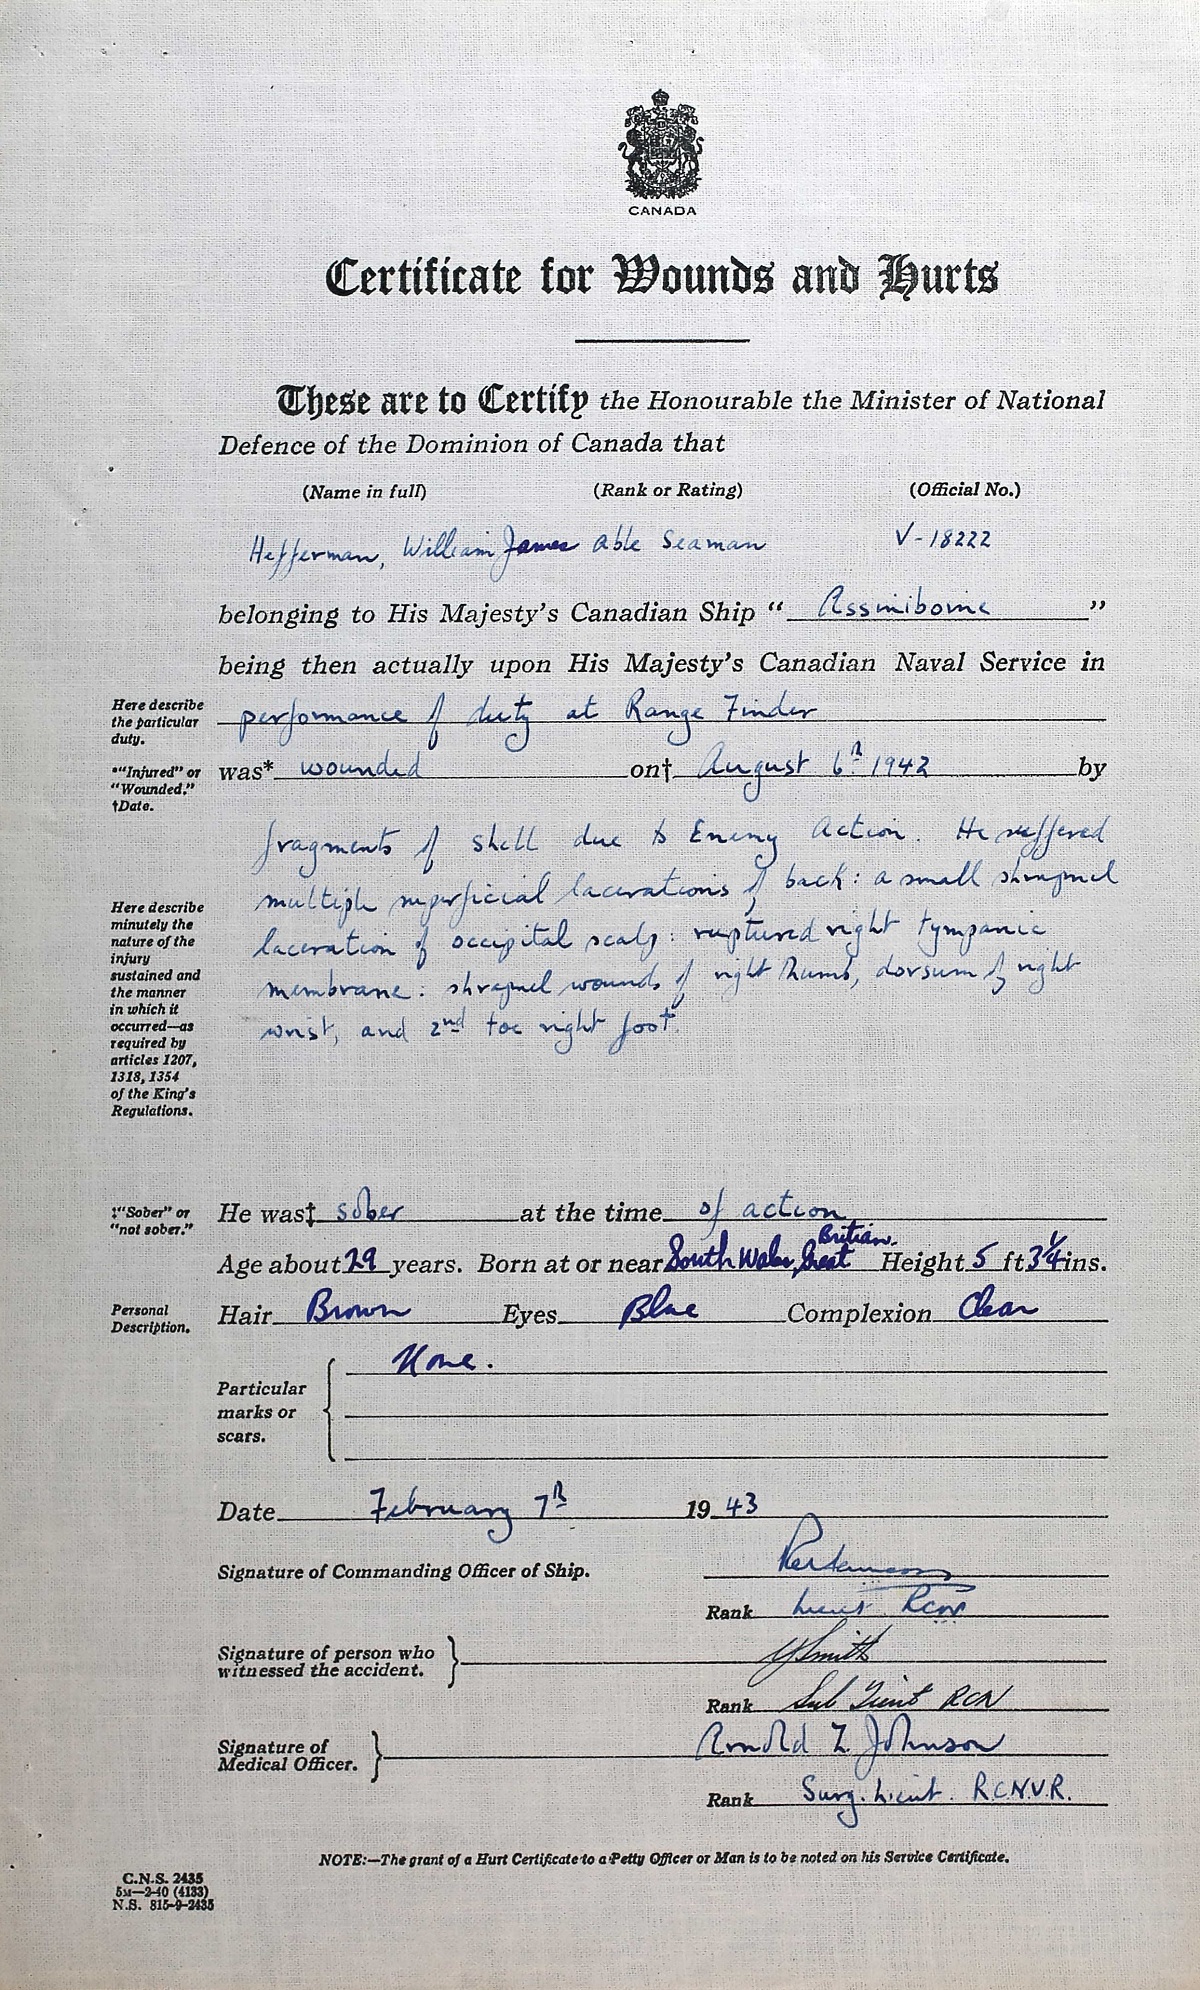 CANADA
Certificate for Wounds and Hurts
These are to Certify the Honourable the Minister of National
Defence of the Dominion of Canada that
(Name in full) (Rank or Rating) (Official No.)
Hefferman, William James Able Seaman V-18222
belonging to His Majesty's Canadian Ship " Assiniboine "
being then actually upon His Majesty's Canadian Naval Service in
Here describe
the particular
duty.
performance of duty at Range Finder
*"Injured" or
"Wounded."
†Date.
was* wounded on† August 6th 1942 by
fragments of shell due to Enemy Action. He suffered
multiple superficial lacerations of back: a small shrapnel
laceration of occipital scalp: ruptured right tympanic
membrane: shrapnel wounds of right thumb, dorsum of right
wrist, and 2nd toe right foot.
Here describe
minutely the
nature of the
injury
sustained and
the manner
in which it
occurred—as
required by
articles 1207,
1318, 1354
of the King's
Regulations.
‡"Sober" or
"not sober."
He was‡ sober at the time of action
Age about 29 years. Born at or near South Wales, Great Britian. Height 5 ft 3 1/4 ins.
Personal
Description.
Hair Brown Eyes Blue Complexion Clear
Particular
marks or
scars.
None.
Date February 7th 1943
Signature of Commanding Officer of Ship.
Rank Lieut. RCN
Signature of person who
witnessed the accident.
Smith
Rank Sub Lieut RCN
Signature of
Medical Officer.
Arnold Z. Johnson
Rank Surg. Lieut. R.C.N.V.R.
NOTE:—The grant of a Hurt Certificate to a Petty Officer or Man is to be noted on his Service Certificate.
C.N.S. 2435
5M—2-40 (4133)
N.S. 815-9-2435